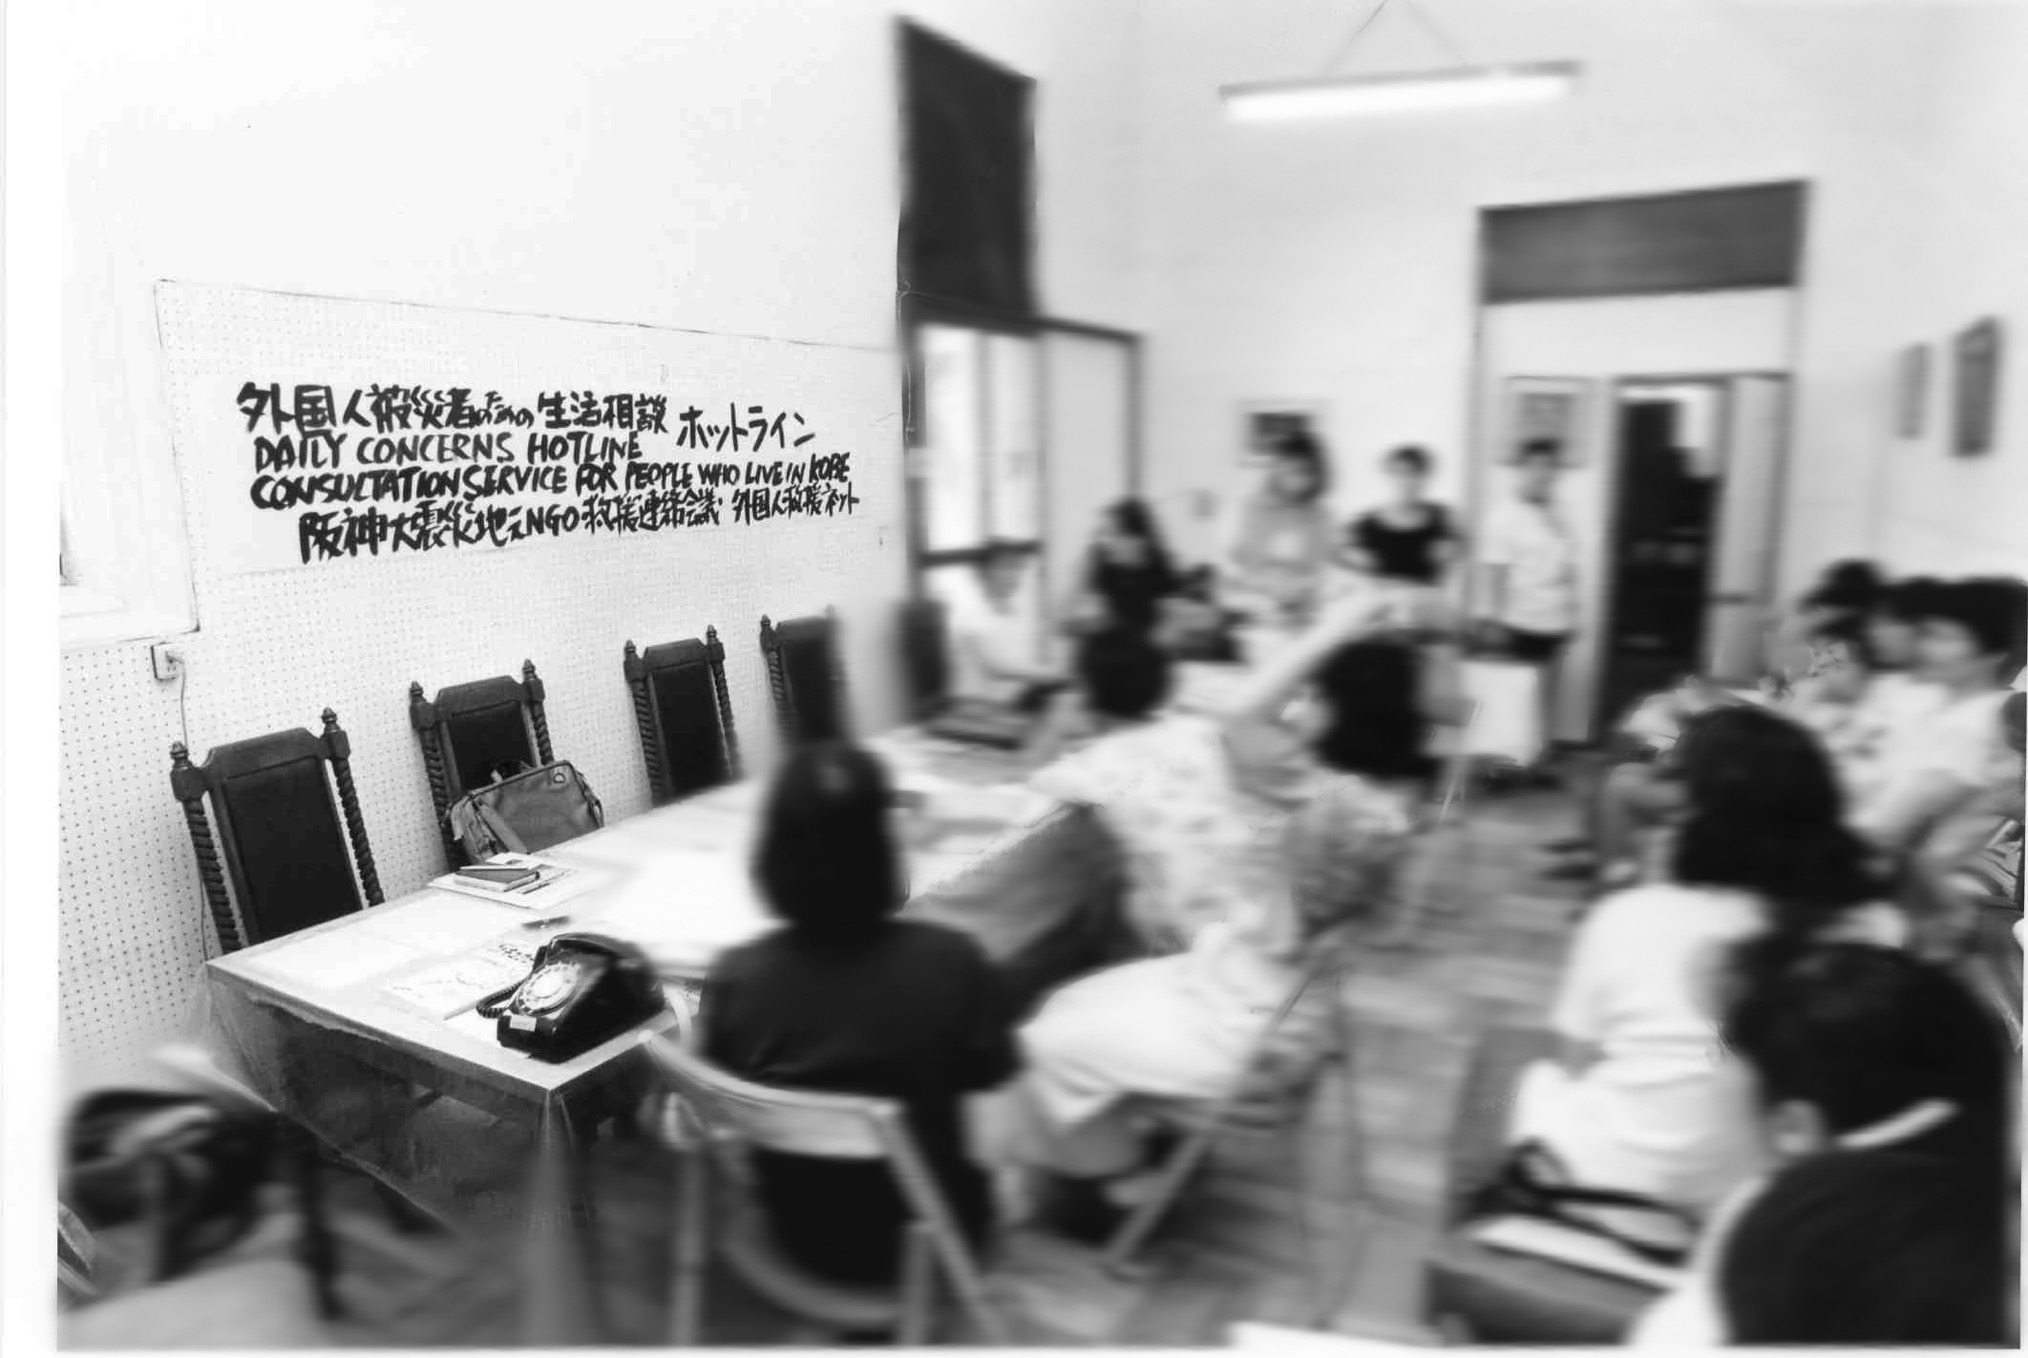 外国人被災者のための生活相談 ホットライン
DAILY CONCERNS HOTLINE
CONSULTATION SERVICE FOR PEOPLE WHO LIVE IN KOBE
阪神大震災地元NGO救援連絡会議 外国人救援ネット